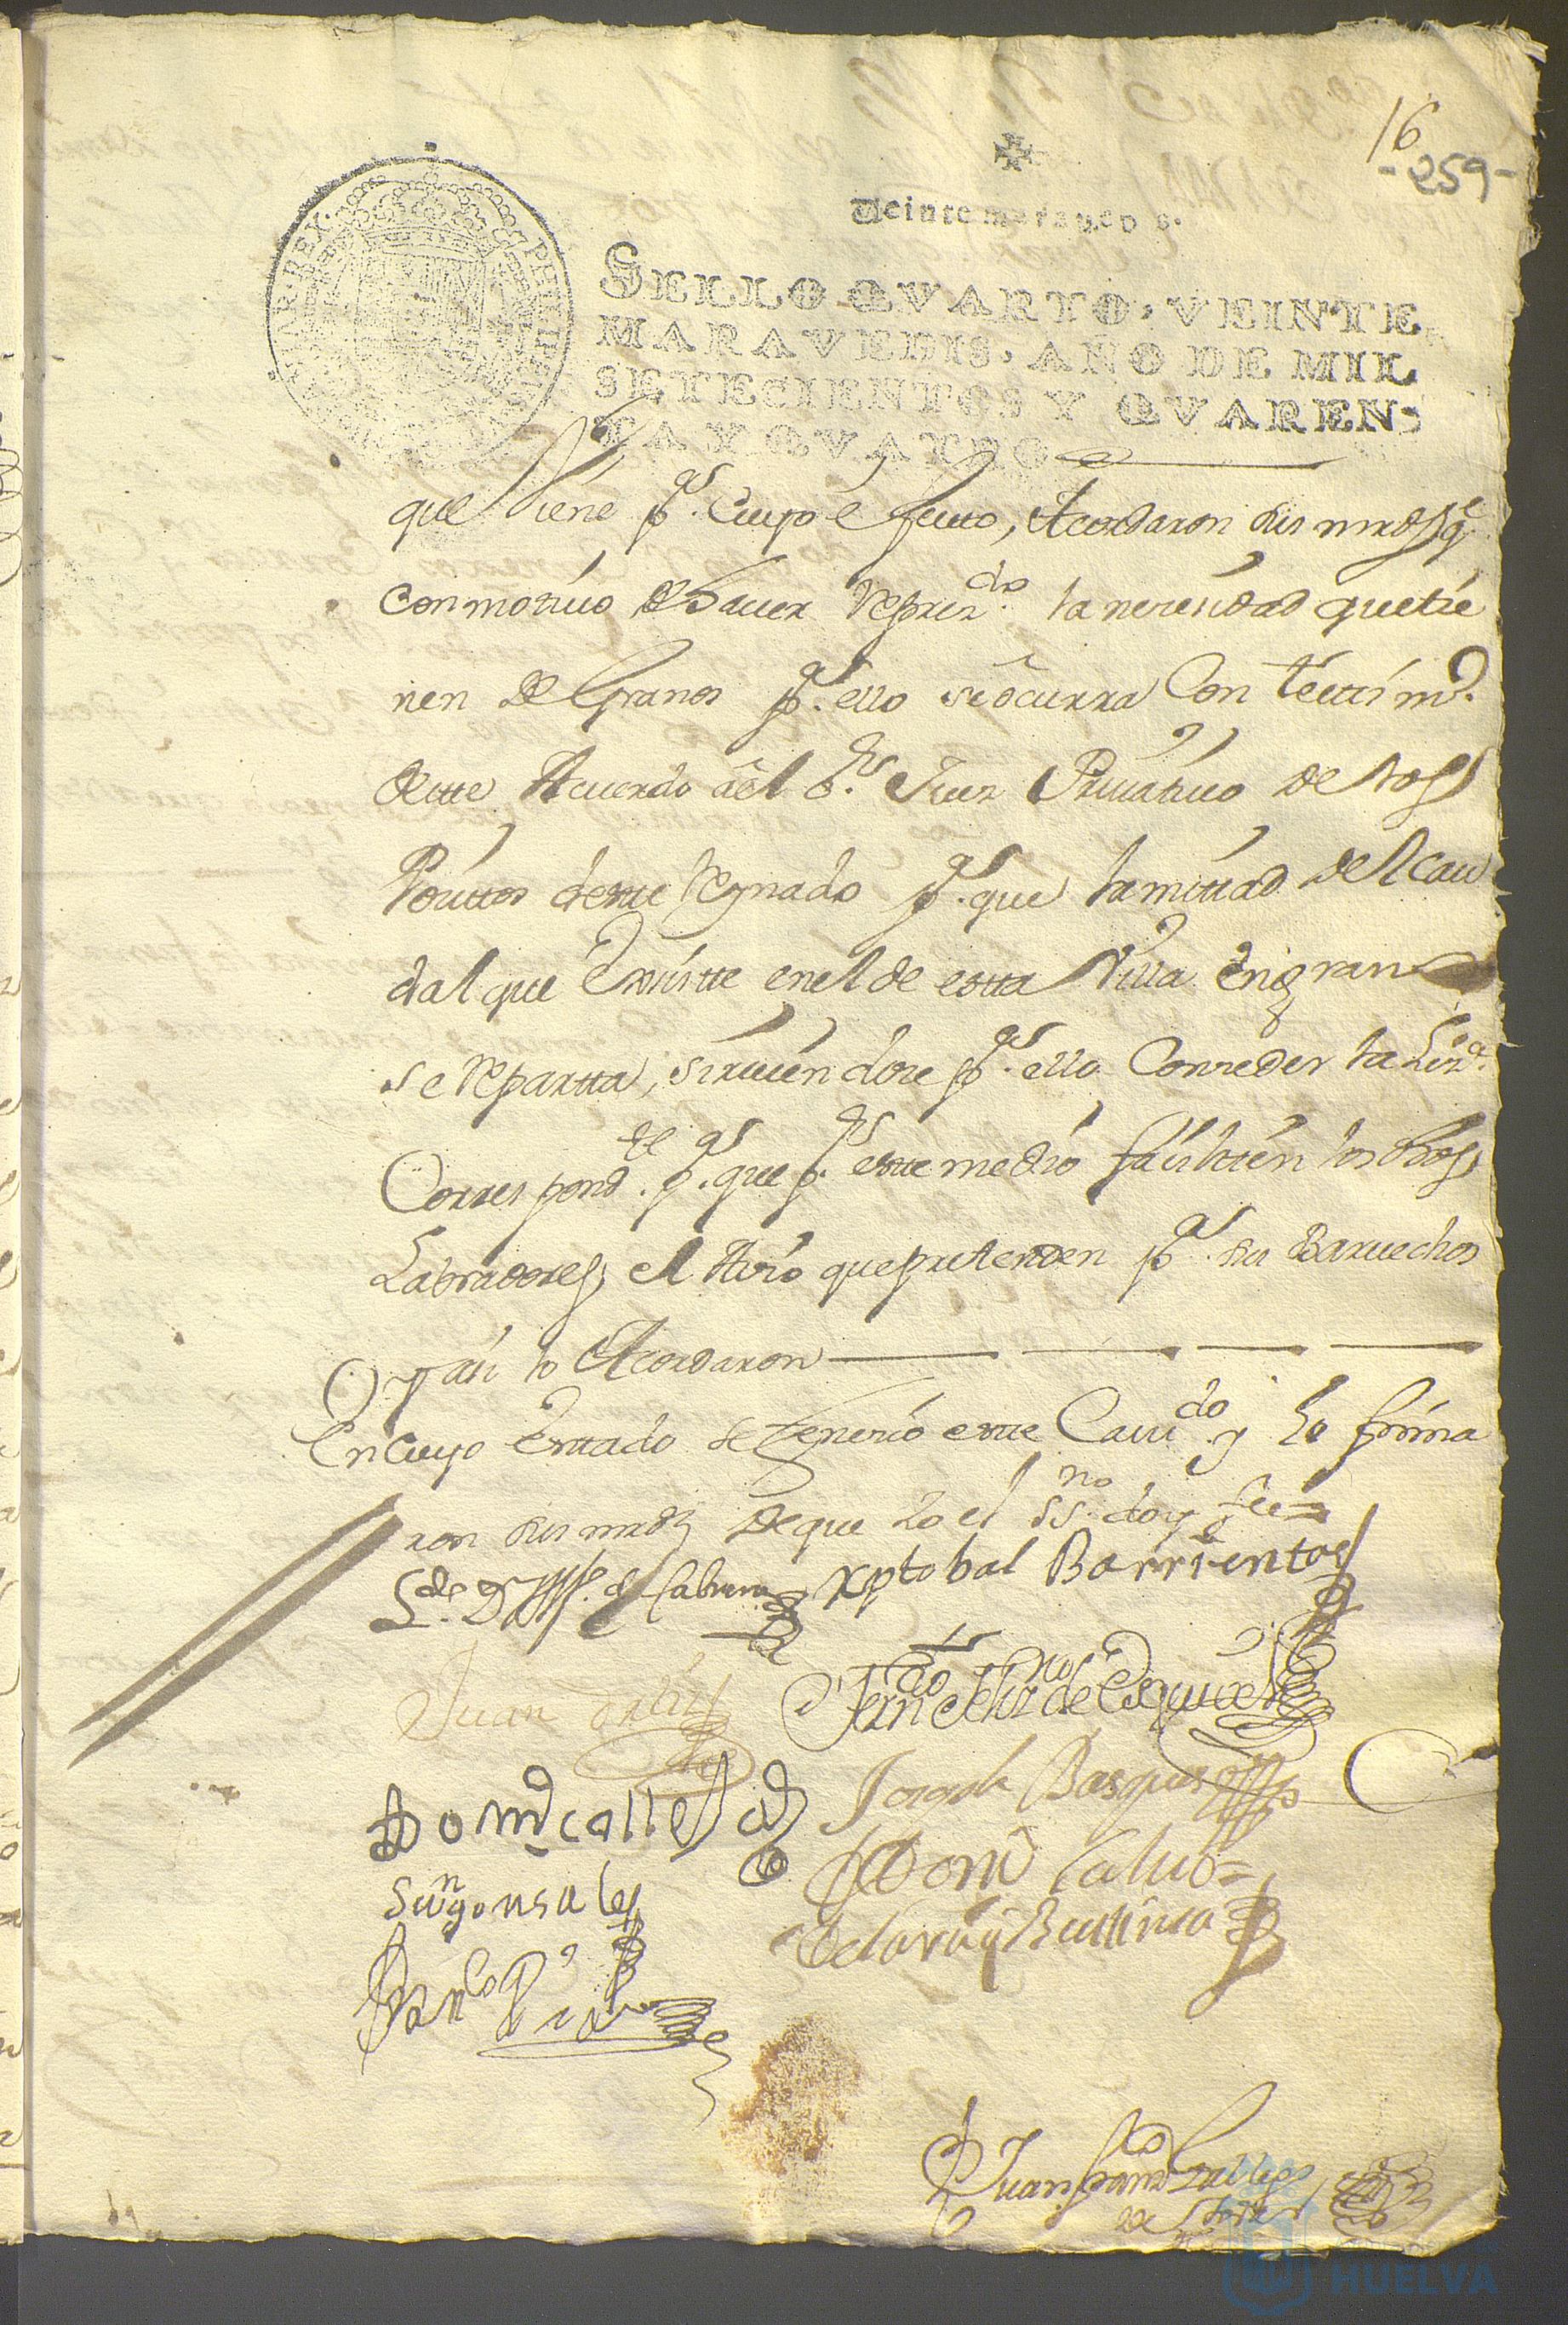 16
-259-
Veinte maravedis.
PHILIPPUS HISPANIAR. REX.
SELLO QVARTO, VEINTE
MARAVEDIS, AÑO DE MIL
SETECIENTOS Y QVAREN-
TA Y QVATRO
que tiene pª. Cuyo efecto, Acordaron sus mrds qe
con motivo de haver Reprezdo. la necesidad que tie
nen de Granos pª. ello se ocurra Con testimº.
deste Acuerdo ael Sr. Juez Privativo de los
Positos deste Reynado pª. que la mitad del cau
dal que Existte en el de estta Villa en gran
se repartta, sirviendose pª. ello Conzeder la Lizª.
Correspondte. pª. que pr. este medio faciliten los dhos
Labradores el Avio que pretenden pª. sus Barvechos
y asi lo Acordaron
En cuyo Estado se fenecio este Cavdo y lo firma
ron sus mrds de que Yo el ssno. doy fee =
Lde. Dn de Cabrera Xptobal Barrientos
Juan Ortiz Ferndo de Esquivel
Domo calle Joseph Basquez
Simn gonsales Domo Calvo =
Franco
Juan Franco Gallegos
HUELVA